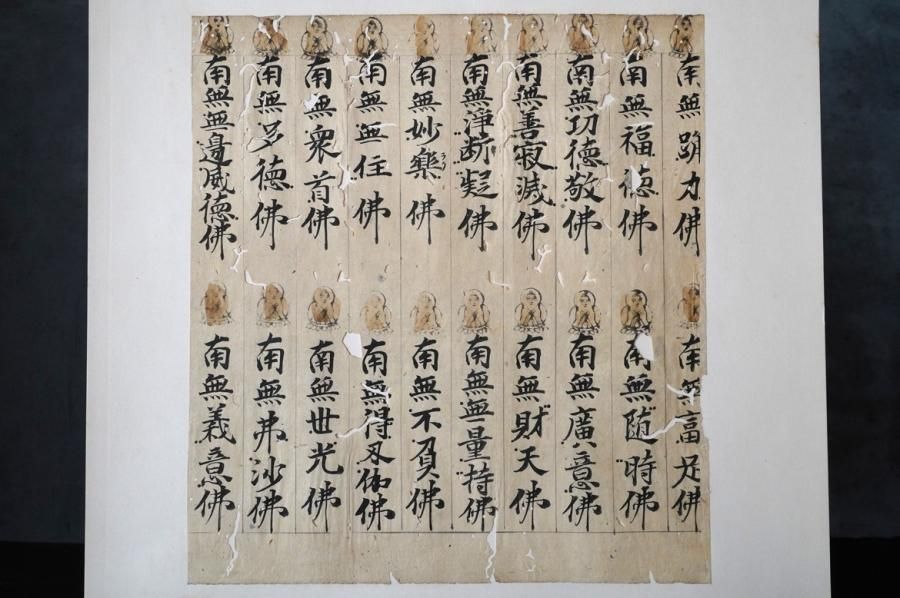 南無力佛
南無富足佛
南無福德佛
南無随時佛
南無功德敬佛
南無廣意佛
南無善寂滅佛
南無財天佛
南無淨斷疑佛
南無無量持佛
南無妙樂佛
南無不負佛
南無無住佛
南無得叉伽佛
南無衆首佛
南無世光佛
南無多德佛
南無弗沙佛
南無無邊威德佛
南無義意佛